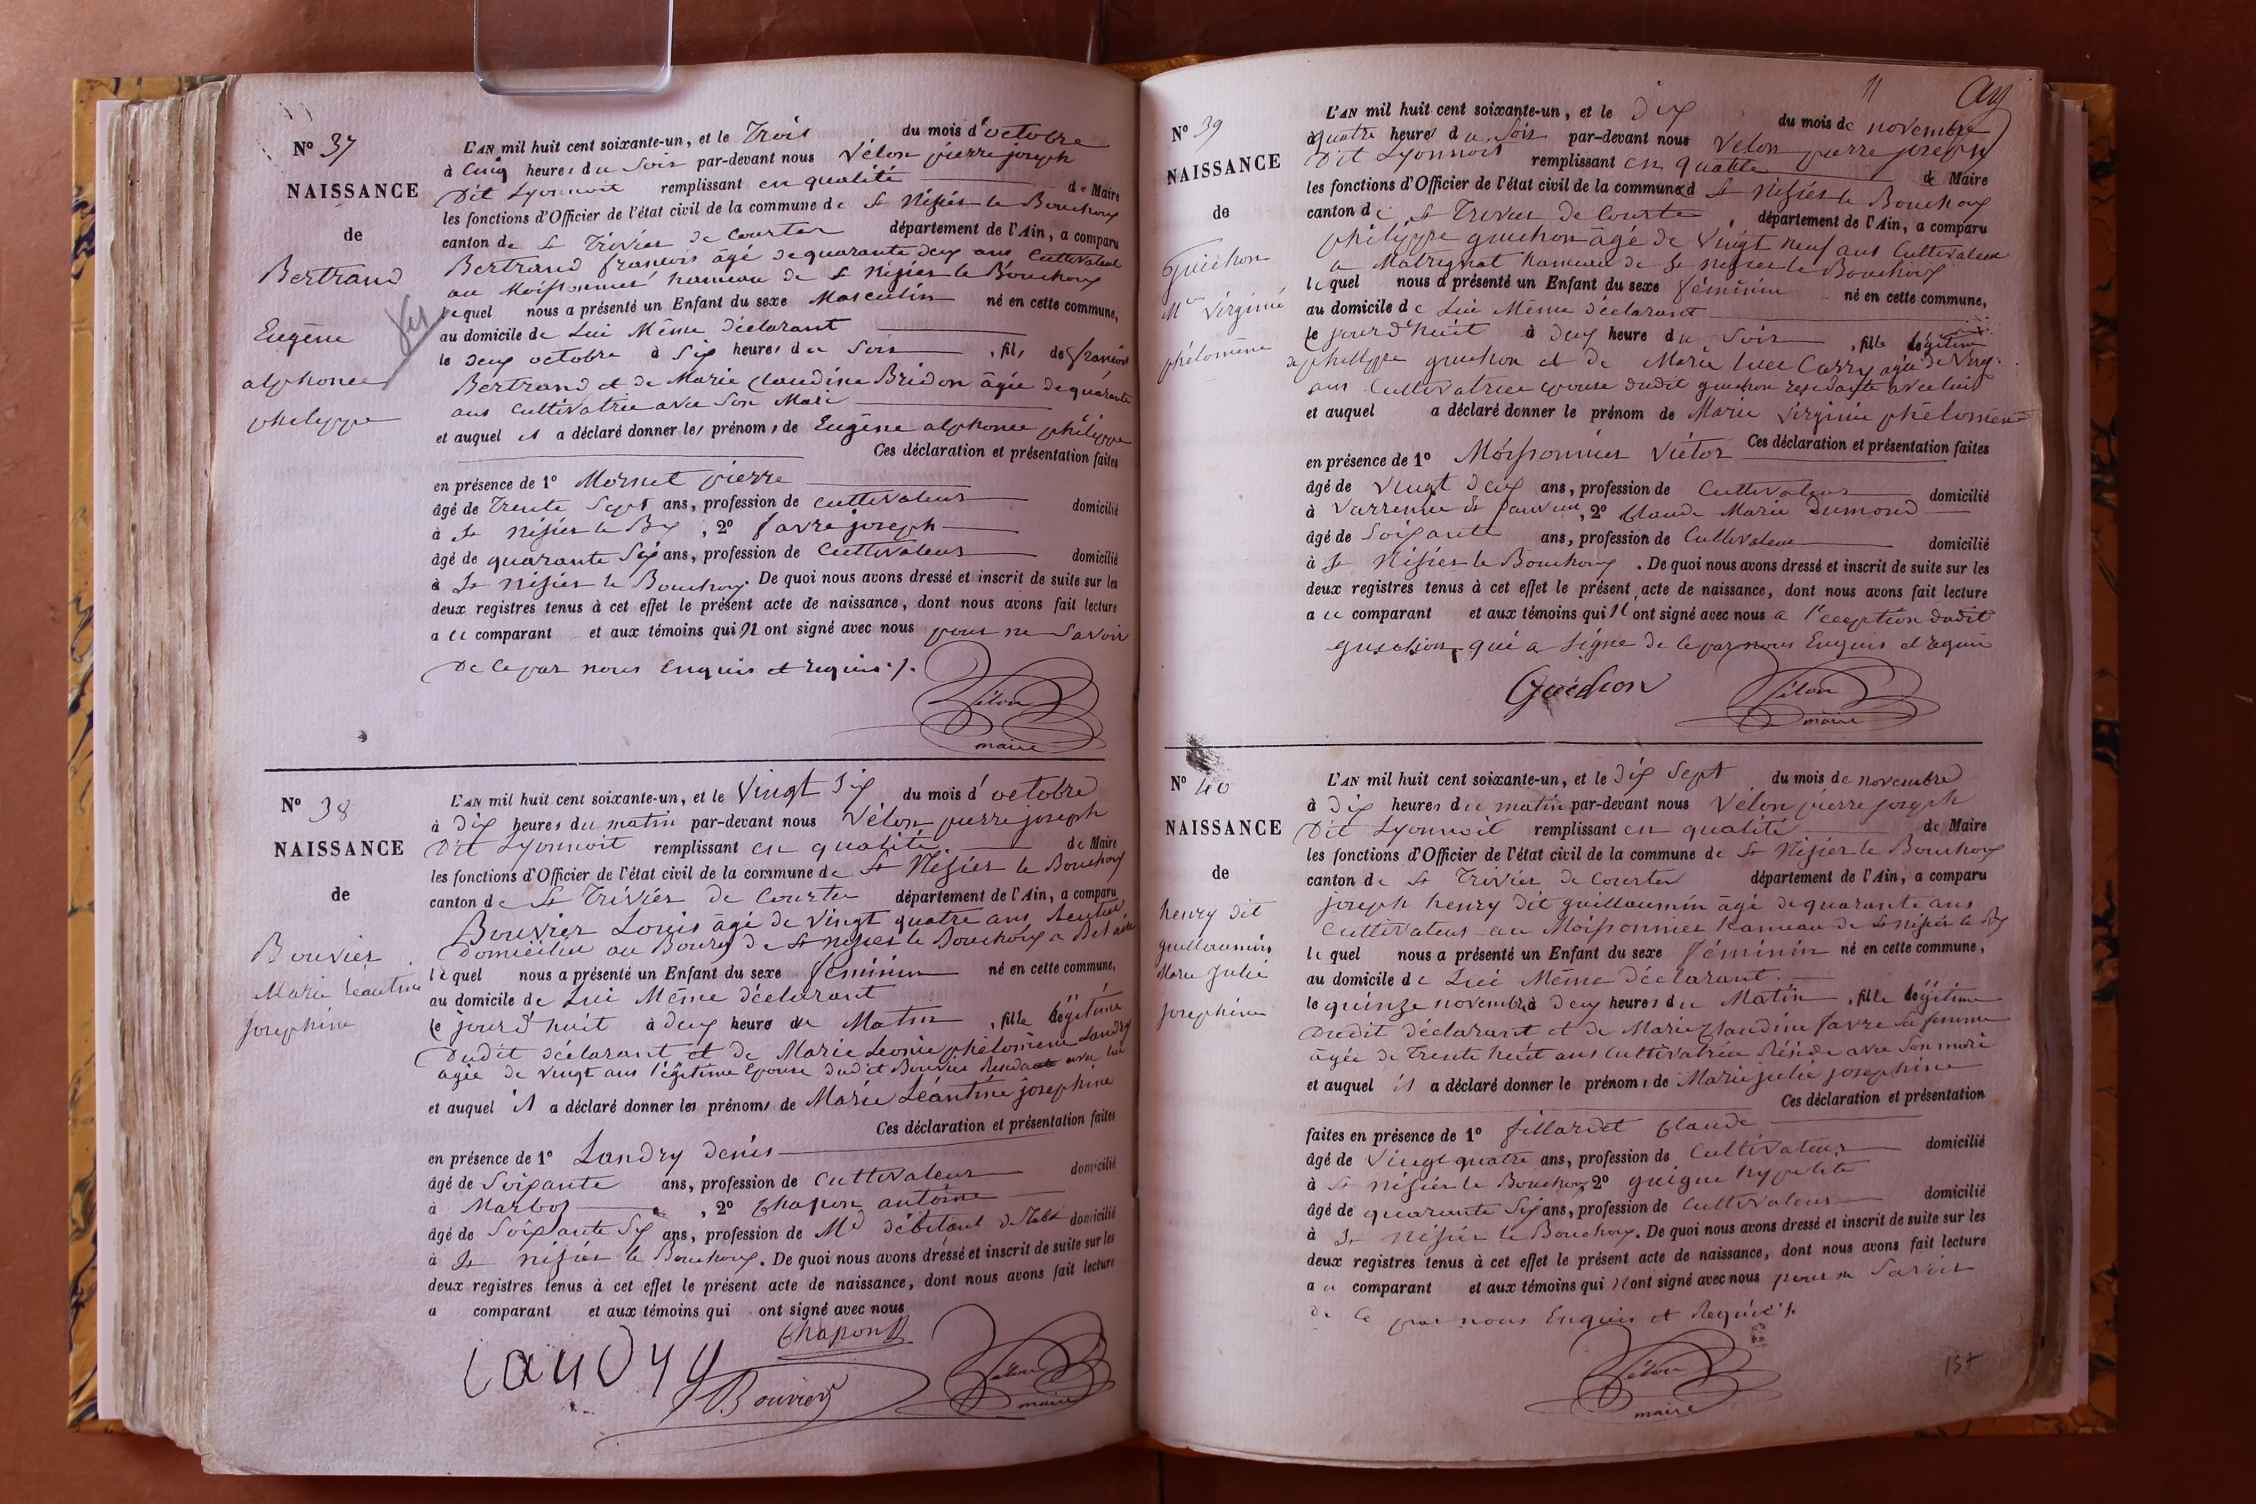 N° 37
NAISSANCE
de
Bertrand
Eugène
alphonce
philippe
L'AN mil huit cent soixante-un, et le Trois du mois d'octobre
à Cinq heures du Soir par-devant nous Vélon pierre joseph
Dit Lyonnoit remplissant en qualité de Maire
les fonctions d'Officier de l'état civil de la commune de St Nisier le Bouchoux
canton de St Trivier de Courtes département de l'Ain, a comparu
Bertrand francois âgé de quarante deux ans Cultivateur
au Moissonnier hameau de St Nisier le Bouchoux
lequel nous a présenté un Enfant du sexe Masculin né en cette commune,
au domicile de Lui Même déclarant
le deux octobre à Six heures du Soir, fils de francois
Bertrand et de Marie Claudine Bridon âgée de quarante
ans Cultivatrice avec Son Mari
et auquel il a déclaré donner les prénoms de Eugène alphonce philippe
Ces déclaration et présentation faites
en présence de 1° Mornet pierre
âgé de Trente Sept ans, profession de Cultivateur domicilié
à St Nisier le Bx, 2° favre joseph
âgé de quarante Six ans, profession de Cultivateur domicilié
à St Nisier le Bouchoux. De quoi nous avons dressé et inscrit de suite sur les
deux registres tenus à cet effet le présent acte de naissance, dont nous avons fait lecture
a ce comparant et aux témoins qui N ont signé avec nous pour ne Savoir
de ce par nous Enquis et requis ./.
Vélon
maire
N° 38
NAISSANCE
de
Bouvier
Marie Léantine
Josephine
L'AN mil huit cent soixante-un, et le Vingt Six du mois d'octobre
à Dix heures du matin par-devant nous Vélon pierre joseph
Dit Lyonnoit remplissant en qualité de Maire
les fonctions d'Officier de l'état civil de la commune de St Nisier le Bouchoux
canton de St Trivier de Courtes département de l'Ain, a comparu
Bouvier Louis âgé de Vingt quatre ans
Domicilié au Bourg de St Nisier le Bouchoux
lequel nous a présenté un Enfant du sexe féminin né en cette commune,
au domicile de Lui Même déclarant
le jour d'huit à deux heure du Matin, fille légitime
Dudit déclarant et de Marie Leonie phélomène Landry
agée de vingt ans légitime Epouse dudit Bouvier Résidante avec lui
et auquel il a déclaré donner les prénoms de Marie Léantine josephine
Ces déclaration et présentation faites
en présence de 1° Landry denis
âgé de Soixante ans, profession de Cultivateur domicilié
à Marboz, 2° Chapon antoine
âgé de Soixante Six ans, profession de Md débitant de Tabac domicilié
à St Nisier le Bouchoux. De quoi nous avons dressé et inscrit de suite sur les
deux registres tenus à cet effet le présent acte de naissance, dont nous avons fait lecture
a comparant et aux témoins qui ont signé avec nous
Chapon
Landry
Bouvier
Vélon
maire
11
N° 39
NAISSANCE
de
Guichon
Mie Virginie
phélomène
L'AN mil huit cent soixante-un, et le dix du mois de novembre
à quatre heures du Soir par-devant nous Vélon pierre joseph
Dit Lyonnoit remplissant en qualité de Maire
les fonctions d'Officier de l'état civil de la commune d St Nisier le Bouchoux
canton de St Trivier de Courtes, département de l'Ain, a comparu
philippe guichon âgé de Vingt neuf ans Cultivateur
a Matrignat hameau de St Nisier le Bouchoux
lequel nous a présenté un Enfant du sexe féminin né en cette commune,
au domicile de Lui Même déclarant
le jour d'huit à deux heure du Soir, fille légitime
de philippe guichon et de Marie Carry agée de Ving
ans Cultivatrice epouse dudit guichon residante avec lui
et auquel a déclaré donner le prénom de Marie Virginie phélomène
Ces déclaration et présentation faites
en présence de 1° Moissonnier Victor
âgé de Vingt deux ans, profession de Cultivateur domicilié
à Varrenne St Sauveur, 2° Claude Marie Dumond
âgé de Soixante ans, profession de Cultivateur domicilié
à St Nisier le Bouchoux. De quoi nous avons dressé et inscrit de suite sur les
deux registres tenus à cet effet le présent acte de naissance, dont nous avons fait lecture
a ce comparant et aux témoins qui N ont signé avec nous a l'exception dudit
guichon qui a Signe de ce par nous Enquis et requis
Guichon
Vélon
maire
N° 40
NAISSANCE
de
henry dit
guillaumin
Marie Julie
Josephine
L'AN mil huit cent soixante-un, et le dix Sept du mois de novembre
à dix heures du matin par-devant nous Vélon pierre joseph
Dit Lyonnoit remplissant en qualité de Maire
les fonctions d'Officier de l'état civil de la commune de St Nisier le Bouchoux
canton de St Trivier de Courtes département de l'Ain, a comparu
joseph henry dit guillaumin âgé de quarante ans
Cultivateur au Moissonnier hameau de St Nisier le Bx
lequel nous a présenté un Enfant du sexe féminin né en cette commune,
au domicile de Lui Même déclarant
le quinze novembre à deux heures du Matin, fille légitime
Dudit déclarant et de Marie Claudine favre Sa femme
âgée de Trente huit ans Cultivatrice Réside avec Son mari
et auquel il a déclaré donner le prénoms de Marie julie josephine
Ces déclaration et présentation
faites en présence de 1° fillardet Claude
âgé de Vingt quatre ans, profession de Cultivateur domicilié
à St Nisier le Bouchoux 2° guigue hypolite
âgé de quarante Six ans, profession de Cultivateur domicilié
à St Nisier le Bouchoux. De quoi nous avons dressé et inscrit de suite sur les
deux registres tenus à cet effet le présent acte de naissance, dont nous avons fait lecture
a ce comparant et aux témoins qui N ont signé avec nous pour ne Savoir
de ce par nous Enquis et Requis ./.
Vélon
maire